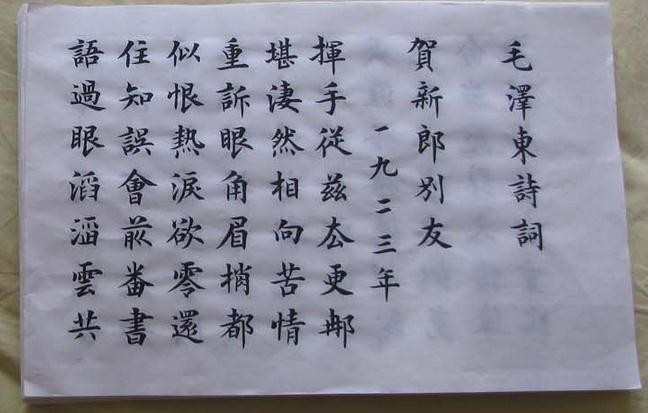 毛澤東詩詞
賀新郎別友
一九二三年
揮手從茲去更那
堪淒然相向苦情
重訴眼角眉梢都
似恨熱淚欲零還
住知誤會前番書
語過眼滔滔雲共